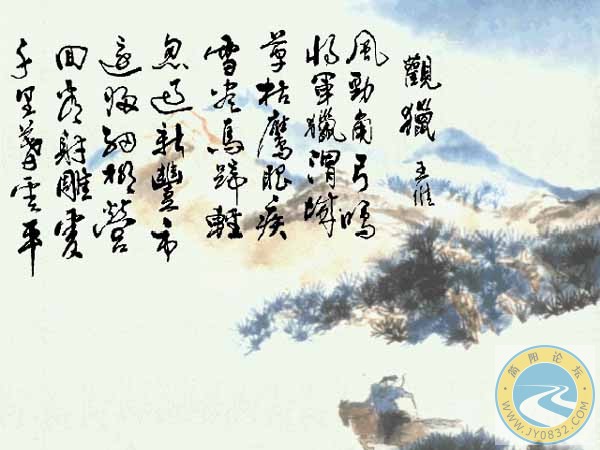 觀獵 王維
風勁角弓鳴
將軍獵渭城
草枯鷹眼疾
雪盡馬蹄輕
忽過新豐市
還歸細柳營
回看射雕處
千里暮雲平
简阳论坛
WWW.JY0832.COM